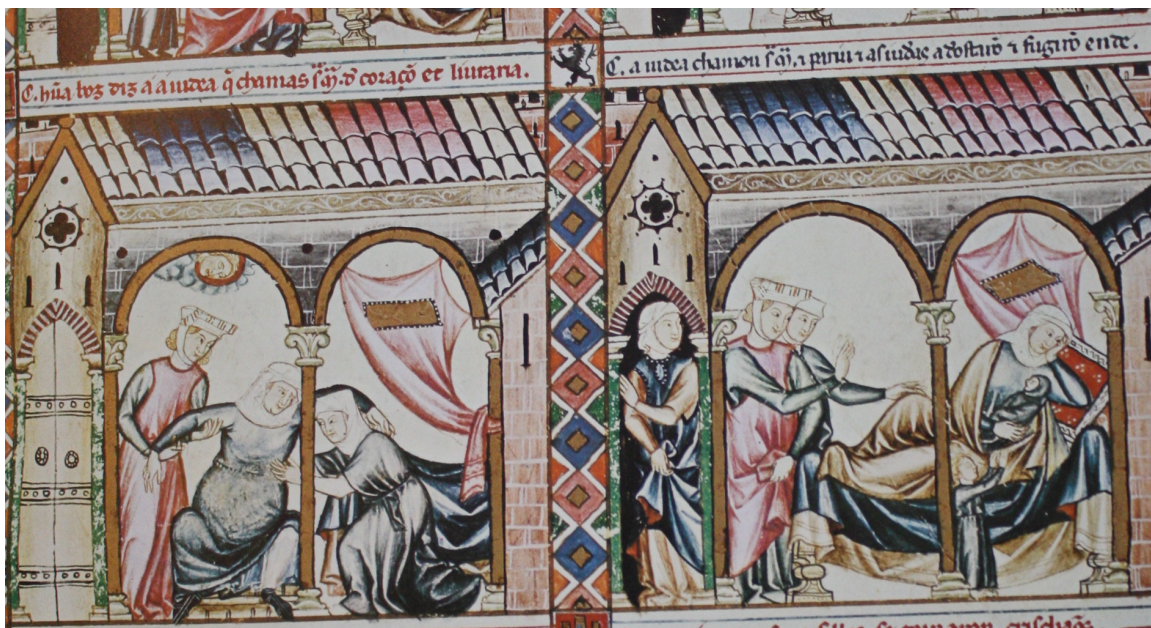 C. hũa boz diz a a iudea q̃ chamas s̃. m̃. d̃ coraçõ et liuraria.
C. a iudea chamou s̃. m̃. ⁊ pariu ⁊ as iudias a dostarõ ⁊ fugirõ ende.